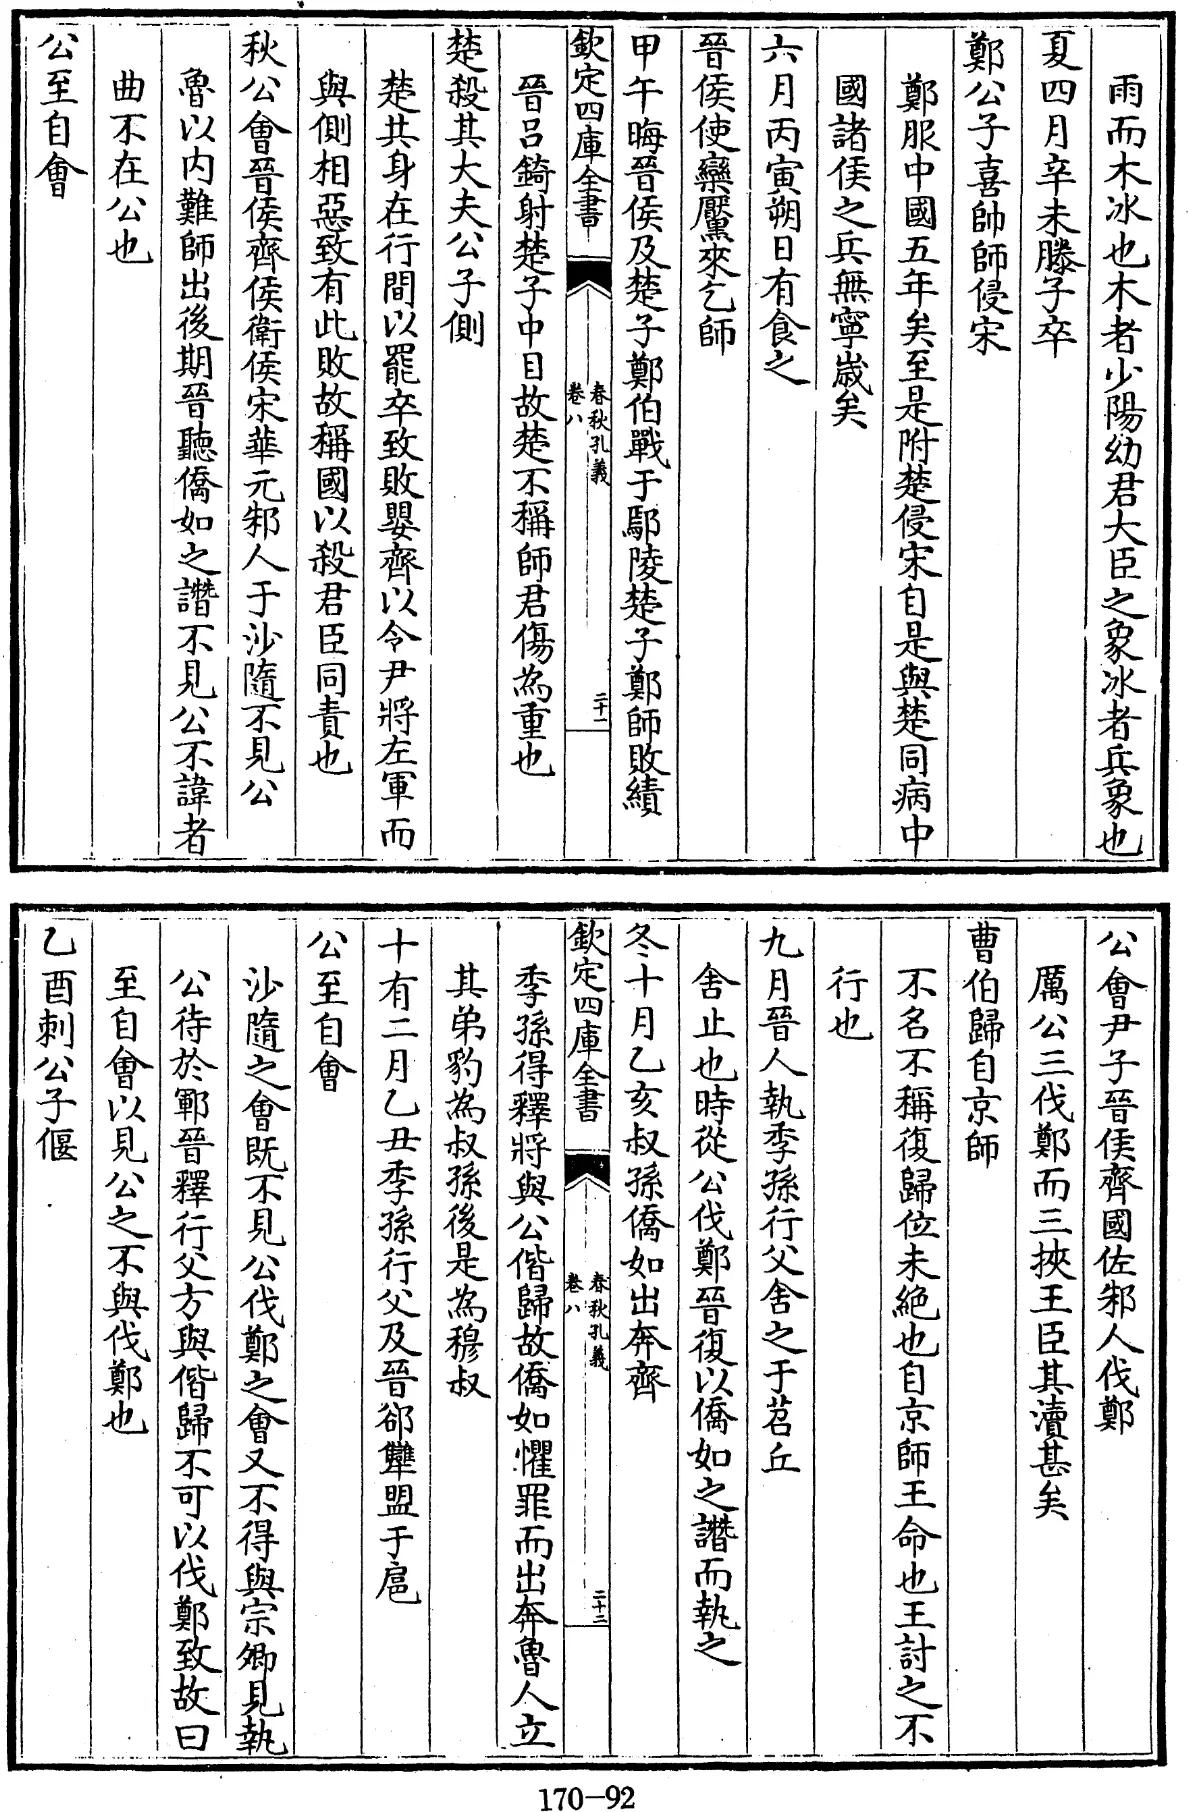 雨而木冰也木者少陽幼君大臣之象冰者兵象也
夏四月辛未滕子卒
鄭公子喜帥師侵宋
鄭服中國五年矣至是附楚侵宋自是與楚同病中
國諸侯之兵無寧嵗矣
六月丙寅朔日有食之
晉侯使欒黶來乞師
甲午晦晉侯及楚子鄭伯戰于鄢陵楚子鄭師敗績
欽定四庫全書
春秋孔義
卷八
二十一
晉呂錡射楚子中目故楚不稱師君傷為重也
楚殺其大夫公子側
楚共身在行間以罷卒致敗嬰齊以令尹將左軍而
與側相惡致有此敗故稱國以殺君臣同責也
秋公會晉侯齊侯衛侯宋華元邾人于沙隨不見公
魯以內難師出後期晉聽僑如之譖不見公不諱者
曲不在公也
公至自會
公會尹子晉侯齊國佐邾人伐鄭
厲公三伐鄭而三挾王臣其瀆甚矣
曹伯歸自京師
不名不稱復歸位未絶也自京師王命也王討之不
行也
九月晉人執季孫行父舍之于苕丘
舍止也時從公伐鄭晉復以僑如之譖而執之
冬十月乙亥叔孫僑如出奔齊
欽定四庫全書
春秋孔義
卷八
二十二
季孫得釋將與公偕歸故僑如懼罪而出奔魯人立
其弟豹為叔孫後是為穆叔
十有二月乙丑季孫行父及晉郤犨盟于扈
公至自會
沙隨之會既不見公伐鄭之會又不得與宗卿見執
公待於鄆晉釋行父方與偕歸不可以伐鄭致故曰
至自會以見公之不與伐鄭也
乙酉刺公子偃
170-92